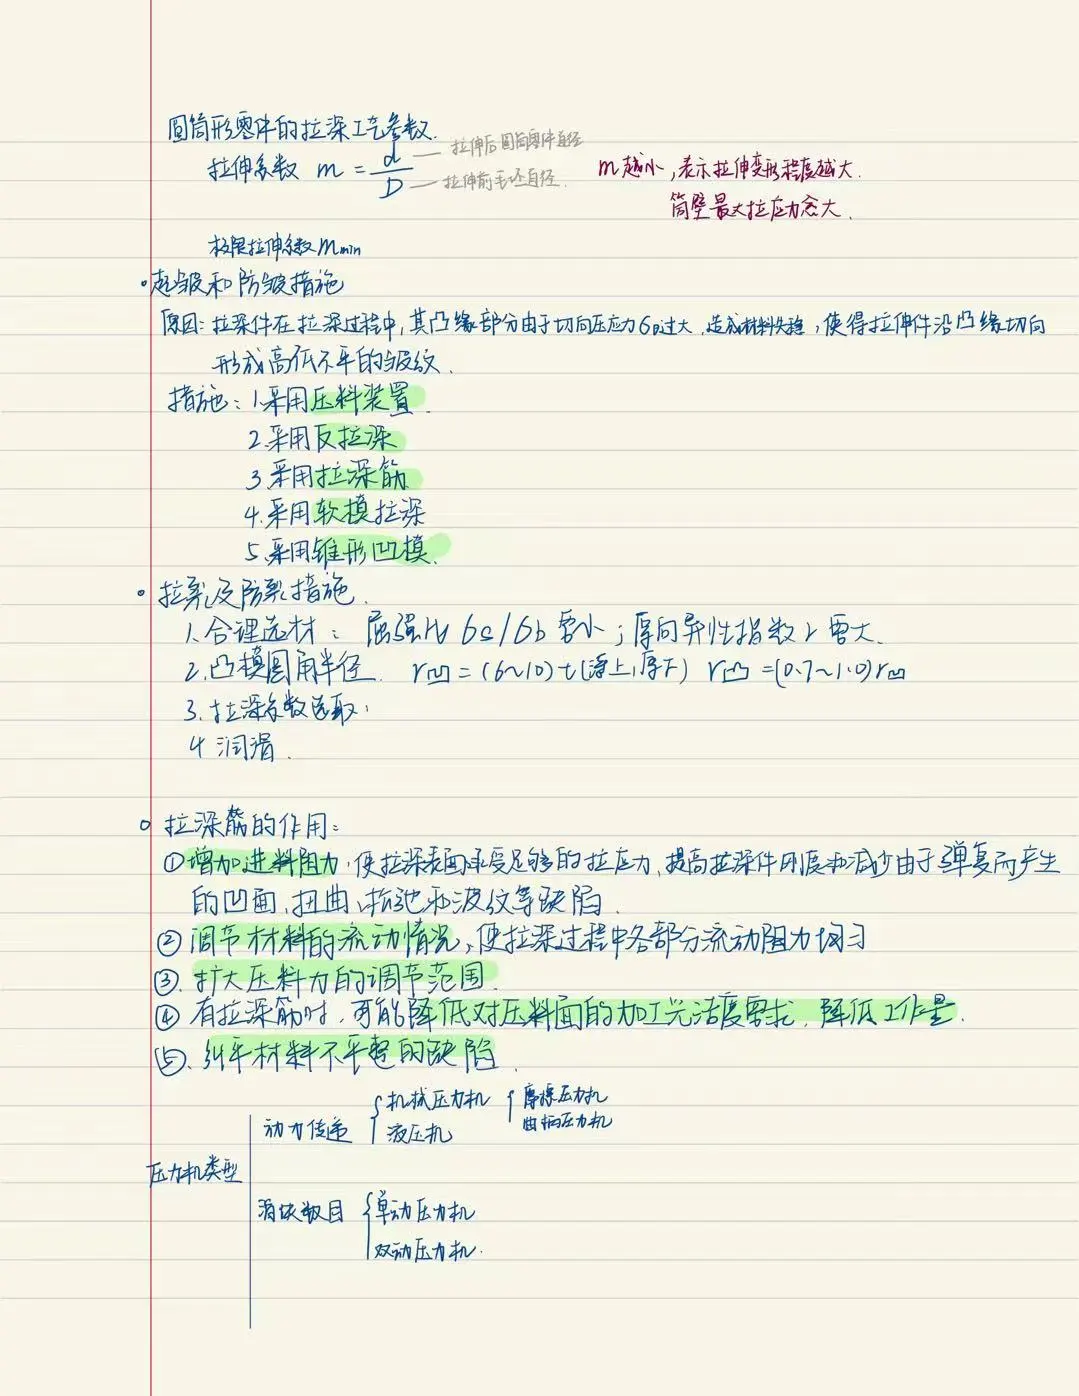 圆筒形零件的拉深工艺参数.
拉伸系数 m = d/D
拉伸后圆筒零件直径
拉伸前毛坯直径.
m越小,表示拉伸变形程度越大.
筒壁最大拉应力愈大.
极限拉伸系数mmin
·起皱和防皱措施
原因:拉深件在拉深过程中,其凸缘部分由于切向压应力σ过大,造成材料失稳,使得拉伸件沿凸缘切向
形成高低不平的皱纹.
措施:1.采用压料装置.
2.采用反拉深
3.采用拉深筋
4.采用软模拉深
5.采用锥形凹模.
·拉裂及防裂措施.
1.合理选材:屈强比 σs/σb 要小;厚向异性指数r要大.
2.凸模圆角半径. r凹=(6~10)t(薄上,厚下) r凸=(0.7~1.0)r凹
3.拉深系数选取;
4.润滑.
。拉深筋的作用:
①增加进料阻力,使拉深表面承受足够的拉应力,提高拉深件刚度和减少由于弹复而产生
的凹面、扭曲、松弛和波纹等缺陷.
②调节材料的流动情况,使拉深过程中各部分流动阻力均匀
③.扩大压料力的调节范围.
④有拉深筋时,可能降低对压料面的加工光洁度要求,降低工作量.
⑤.纠平材料不平整的缺陷.
压力机类型
动力传递 {机械压力机 {摩擦压力机
曲柄压力机
液压机
滑块数目 {单动压力机
双动压力机.